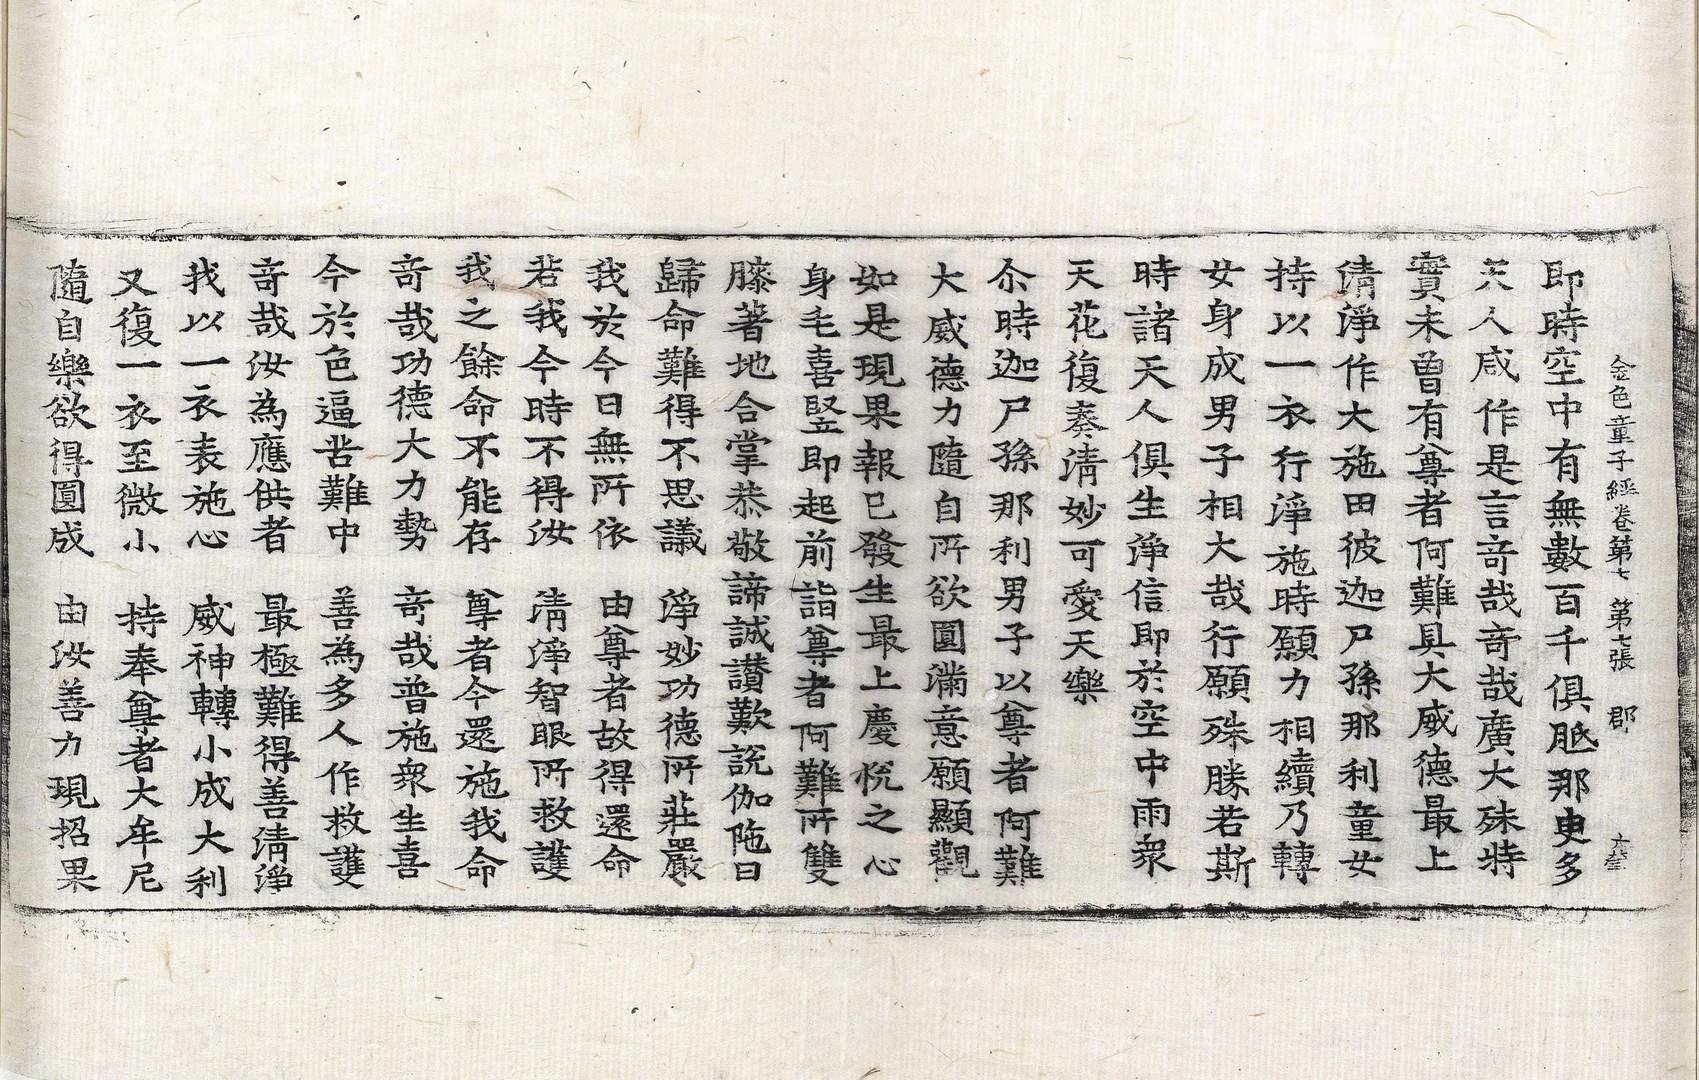 金色童子經卷第七 第七張 郡
即時空中有無數百千俱胝那臾多
天人咸作是言奇哉奇哉廣大殊特
實未曾有尊者何難具大威德最上
清淨作大施田彼迦尸孫那利童女
持以一衣行淨施時願力相續乃轉
女身成男子相大哉行願殊勝若斯
時諸天人俱生淨信即於空中雨衆
天花復奏清妙可愛天樂
尒時迦尸孫那利男子以尊者何難
大威德力隨自所欲圓滿意願顯觀
如是現果報已發生最上慶悅之心
身毛喜竪即起前詣尊者何難所雙
膝著地合掌恭敬諦誠讃歎說伽陁曰
歸命難得不思議 淨妙功德所莊嚴
我於今日無所依 由尊者故得還命
若我今時不得汝 清淨智眼所救護
我之餘命不能存 尊者今還施我命
奇哉功德大力勢 奇哉普施衆生喜
今於色逼苦難中 善為多人作救護
奇哉汝為應供者 最極難得善清淨
我以一衣表施心 威神轉小成大利
又復一衣至微小 持奉尊者大牟尼
隨自樂欲得圓成 由汝善力現招果